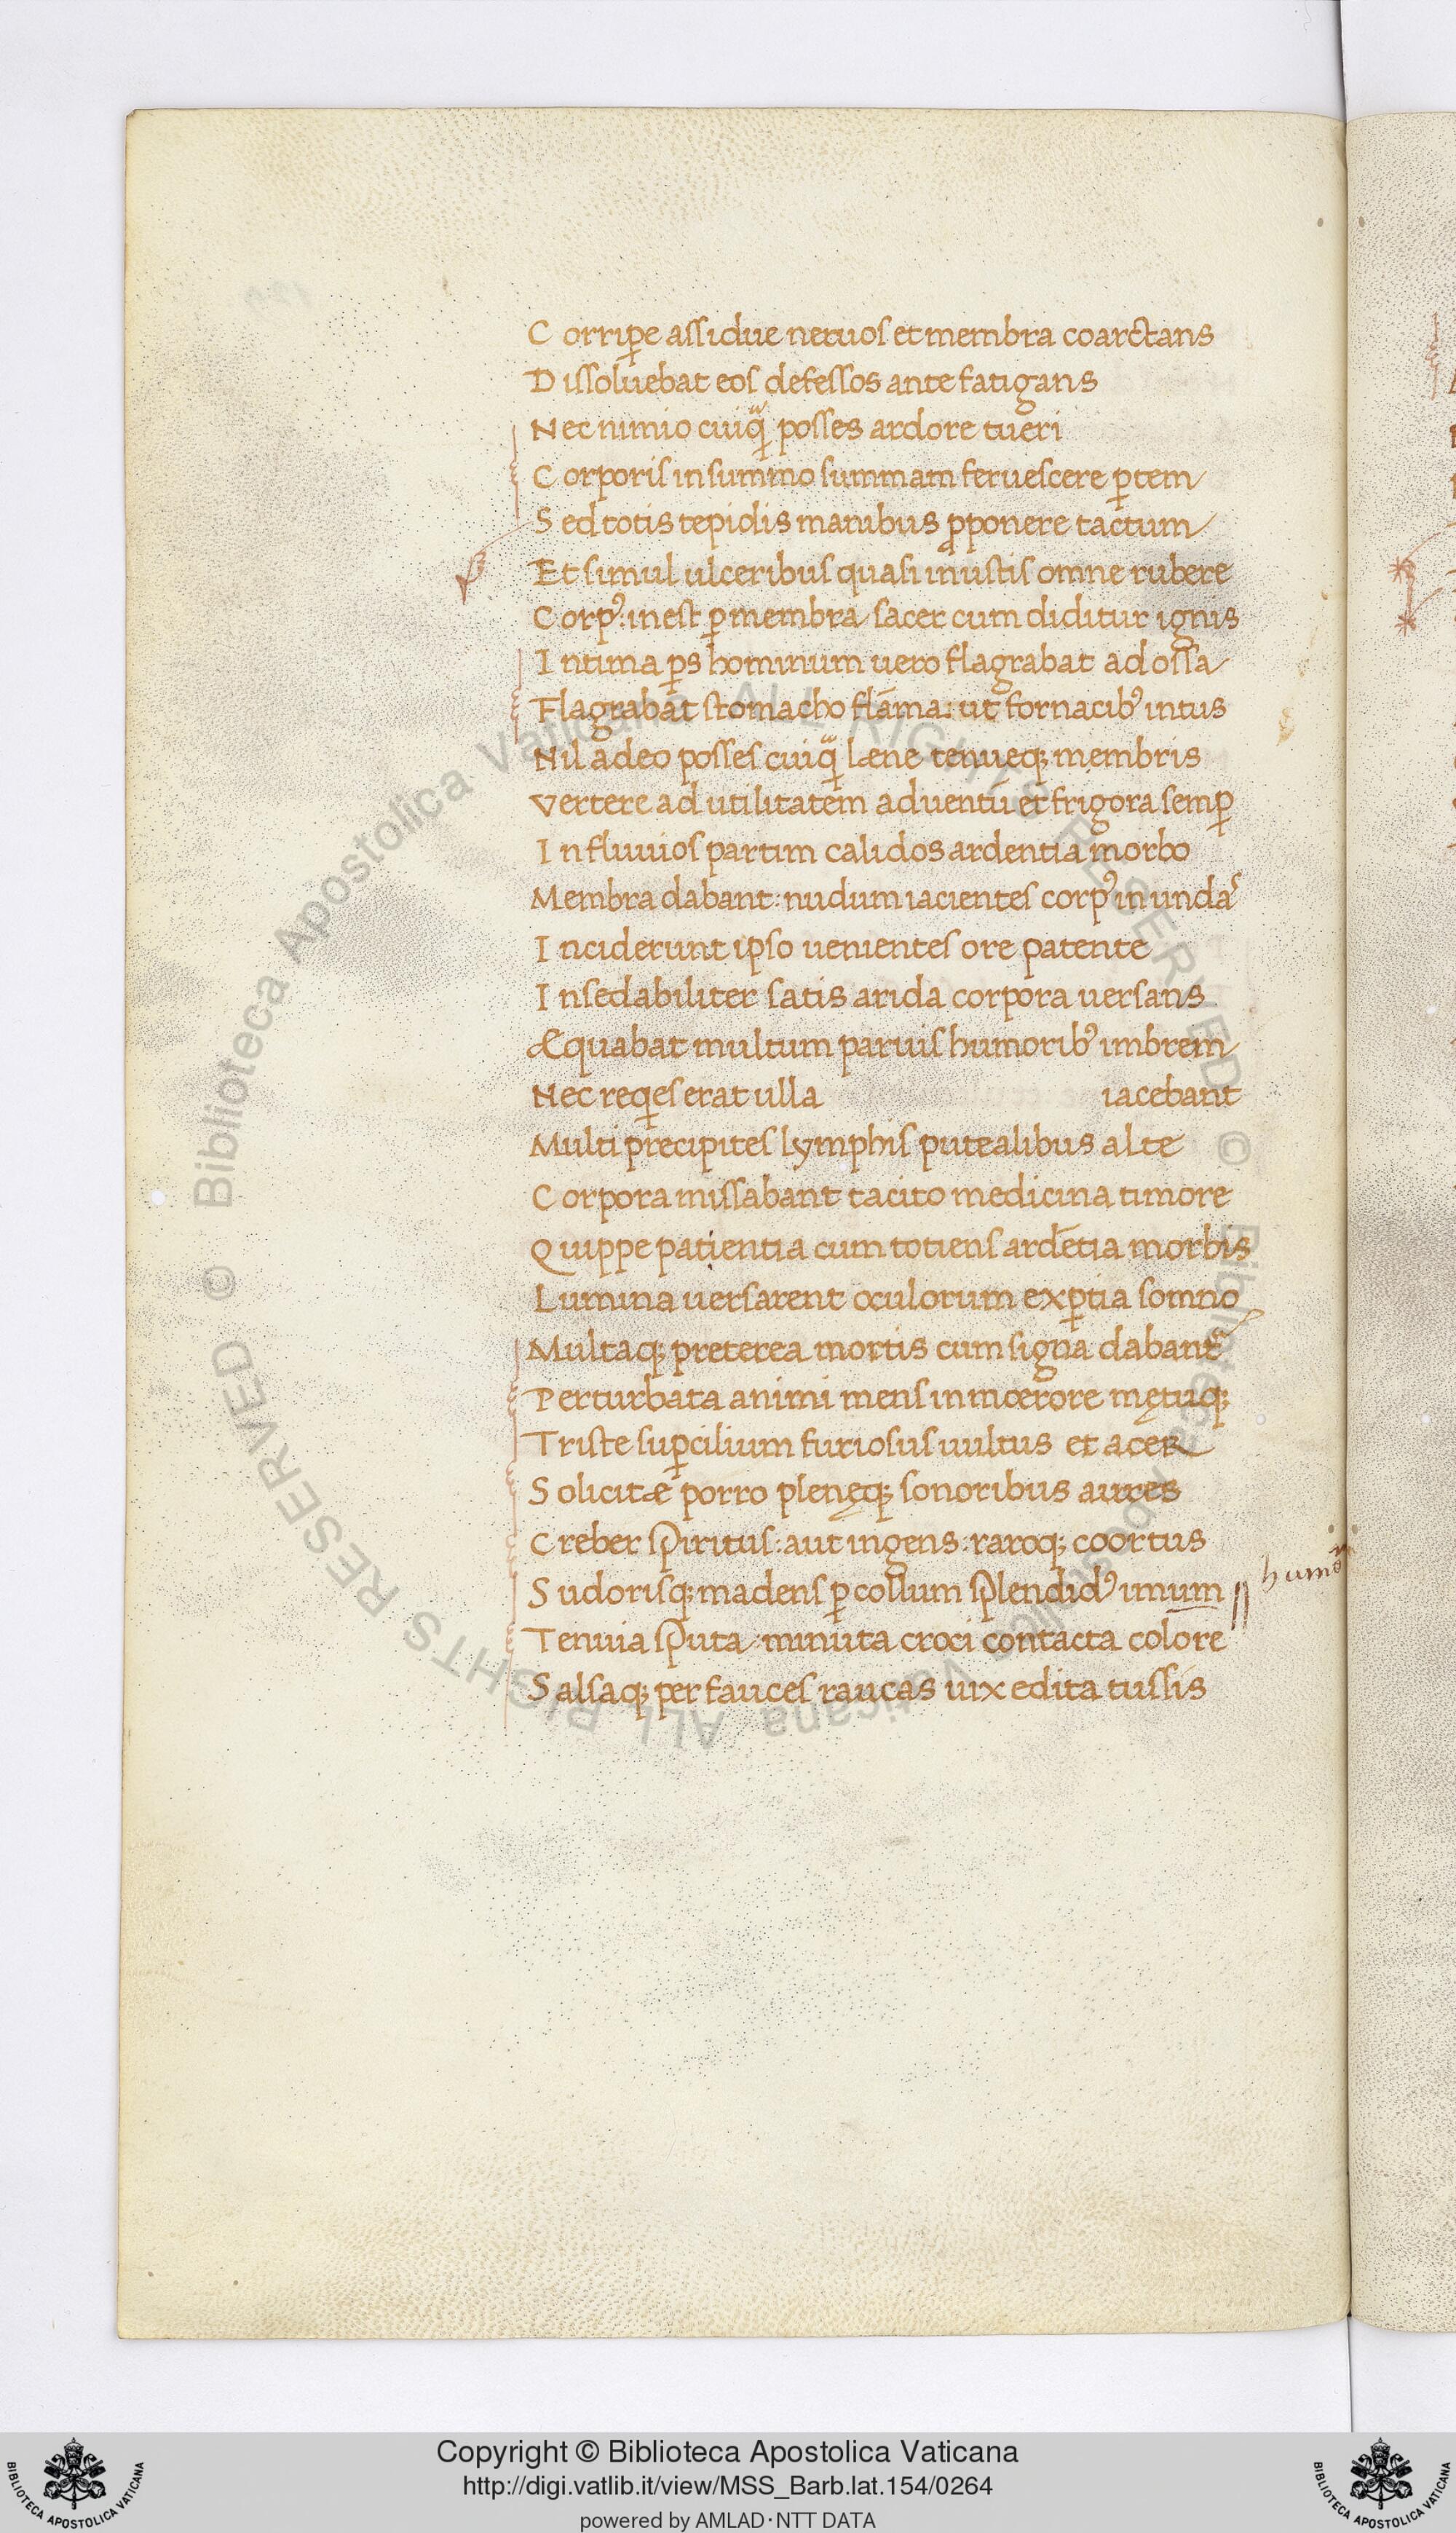 Corriꝑe assidue neruos et membra coarctans
Dissoluebat eos defessos ante fatigans
Nec nimio cuiqᷓ posses ardore tueri
Corporis in summo summam feruescere ꝑtem
Sed totis tepidis manibus ꝓponere tactum
Et simul ulceribus quasi inustis omne rubere
Corpꝰ: inest ꝑ membra sacer cum diditur ignis
Intima ꝑs hominum uero flagrabat ad ossa
Flagrabat stomacho flāma: ut fornacibꝰ intus
Nil adeo posses cuiqᷓ læne tenueqꝫ membris
Vertere ad utilitatem aduentū et frigora semꝑ
In fluuios partim calidos ardentia morbo
Membra dabant: nudum iacientes corpꝰ in undas
Inciderunt ipso uenientes ore patente
Insedabiliter satis arida corpora uersans
Æquabat multum paruis humoribꝰ imbrem
Nec reqes erat ulla iacebant
Multi precipites lymphis putealibus alte
Corpora missabant tacito medicina timore
Quippe patientia cum totiens ardētia morbis
Lumina uersarent oculorum exꝑtia somno
Multaqꝫ preterea mortis cum signa dabant
Perturbata animi mens in mœrore mętuqꝫ
Triste suꝑcilium furiosus uultus et acer
Solicitæ porro plenęqꝫ sonoribus aures
Creber spiritus: aut ingens: raroqꝫ coortus
Sudorisqꝫ madens ꝑ collum splendidꝰ imum
humō
Tenuia sputa minuta croci contacta colore
Salsaqꝫ per fauces raucas uix edita tussis
© Biblioteca Apostolica Vaticana ALL RIGHTS RESERVED © Biblioteca Apostolica Vaticana ALL RIGHTS RESERVED
Copyright © Biblioteca Apostolica Vaticana
http://digi.vatlib.it/view/MSS_Barb.lat.154/0264
powered by AMLAD·NTT DATA
BIBLIOTECA APOSTOLICA VATICANA
BIBLIOTECA APOSTOLICA VATICANA